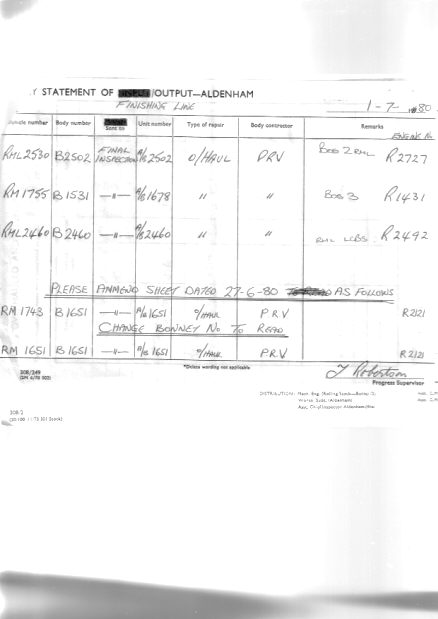 Y STATEMENT OF /OUTPUT—ALDENHAM
FINISHING LINE 1-7-1980
Vehicle number Body number Sent to Unit number Type of repair Body contractor Remarks
ENGINE No
RML2530 B2502 FINAL INSPECTION A/B2502 O/HAUL PRV BOB 2 RML R2727
RM1755 B1531 —"— A/B1678 " " BOB 3 R1431
RML2460 B2460 —"— A/B2460 " " RML LCBS R2492
PLEASE AMMEND SHEET DATED 27-6-80 AS FOLLOWS
RM1743 B1651 —"— A/B1651 O/HAUL PRV R2121
CHANGE BONNET No TO READ
RM 1651 B1651 —"— A/B1651 O/HAUL P.R.V R2121
*Delete wording not applicable
308/249
T Robertson
Progress Supervisor
DISTRIBUTION: Mech. Eng. (Rolling Stock—Buses)
Works Supt. (Aldenham)
Asst. Chief Inspector Aldenham
308/2